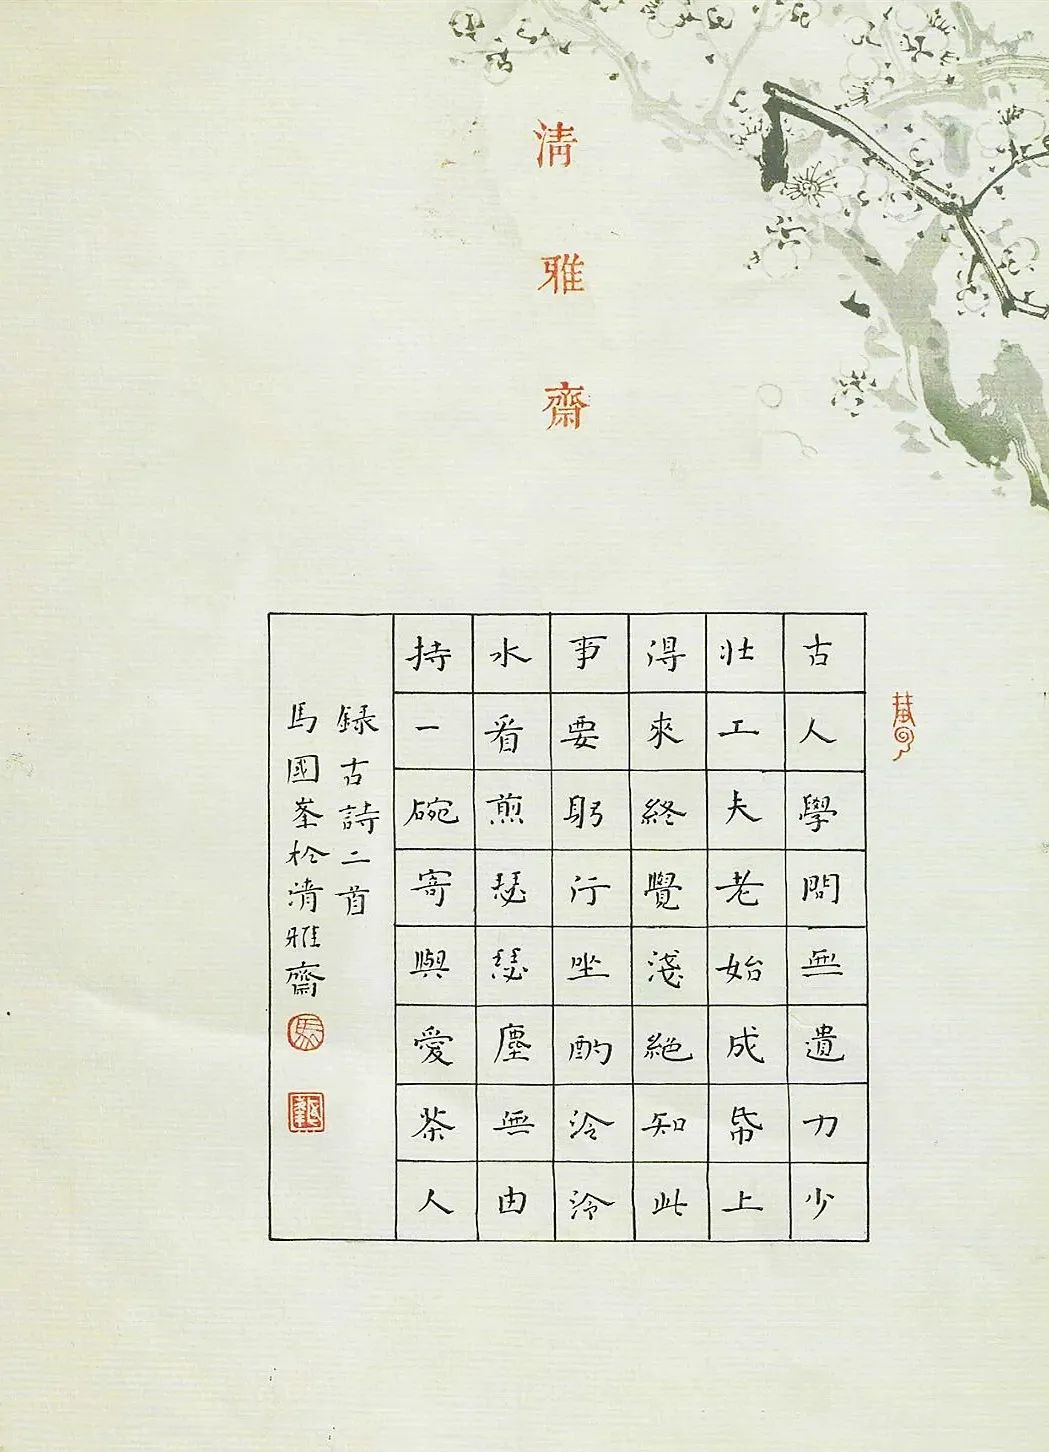 清雅齋
古人學問無遺力少
壯工夫老始成帋上
得來終覺淺絶知此
事要躬行坐酌泠泠
水看煎瑟瑟塵無由
持一碗寄與愛茶人
録古詩二首
馬國峯扵清雅齋
馬